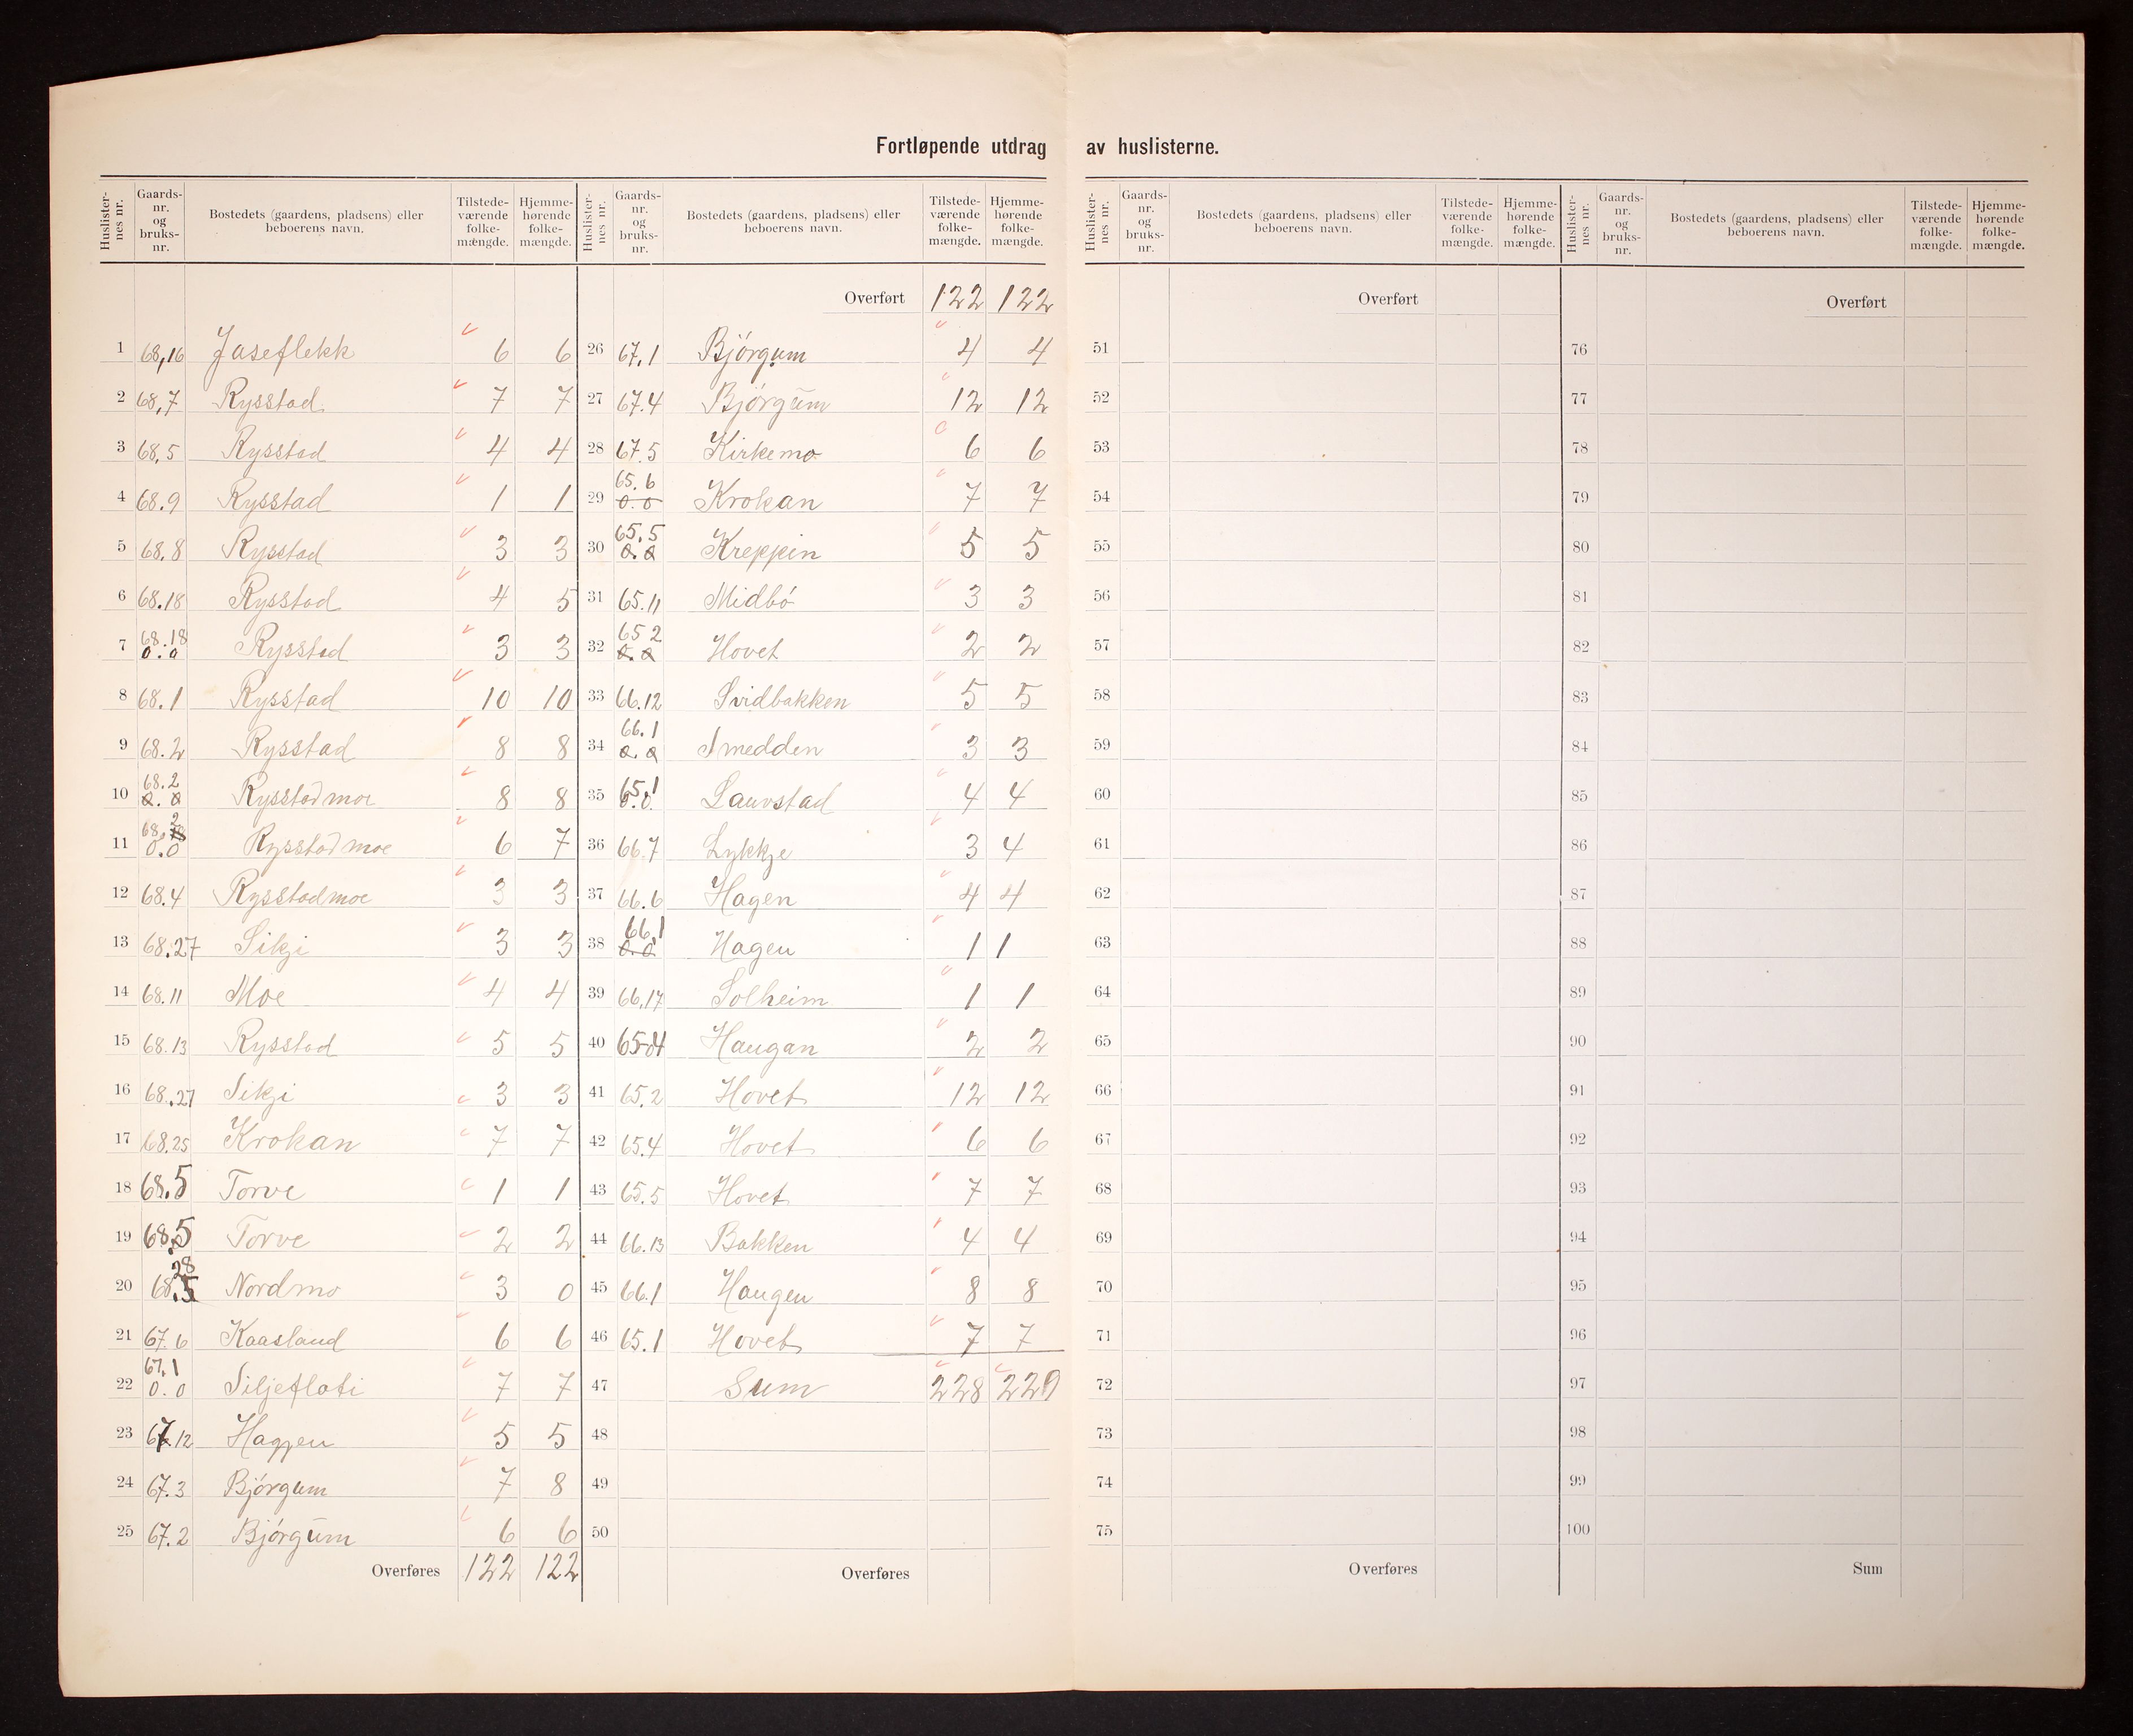 Fortløpende utdrag av huslisterne.
Huslisternes nr. Gaards-nr. og bruks-nr. Bostedets (gaardens, pladsens) eller beboerens navn. Tilstede-værende folke-mængde. Hjemme-hørende folke-mængde.
1 68,16 Jaseflekk 6 6
2 68,7 Rysstad 7 7
3 68,5 Rysstad 4 4
4 68.9 Rysstad 1 1
5 68.8 Rysstad 3 3
6 68.18 Rysstad 4 5
7 68.18 0.0 Rysstad 3 3
8 68.1 Rysstad 10 10
9 68.2 Rysstad 8 8
10 68.2 0.0 Rysstadmoe 8 8
11 68.2 0.0 Rysstadmoe 6 7
12 68.4 Rysstadmoe 3 3
13 68.27 Sikji 3 3
14 68.11 Moe 4 4
15 68.13 Rysstad 5 5
16 68.27 Sikji 3 3
17 68.25 Krokan 7 7
18 68.5 Torve 1 1
19 68.5 Torve 2 2
20 68.28 Nordmo 3 0
21 67.6 Kaasland 6 6
22 67.1 0.0 Siljeflati 7 7
23 67.12 Haggen 5 5
24 67.3 Bjórgum 7 8
25 67.2 Bjórgum 6 6
Overføres 122 122
Huslisternes nr. Gaards-nr. og bruks-nr. Bostedets (gaardens, pladsens) eller beboerens navn. Tilstede-værende folke-mængde. Hjemme-hørende folke-mængde.
Overført 122 122
26 67,1 Bjórgum 4 4
27 67.4 Bjórgum 12 12
28 67.5 Kirkemo 6 6
29 65.6 0.0 Krokan 7 7
30 65.5 0.0 Kreppin 5 5
31 65.11 Midbó 3 3
32 65 2 0.0 Hovet 2 2
33 66.12 Svidbakken 5 5
34 66.1 0.0 Smedden 3 3
35 65.1 0.0 Lauvstad 4 4
36 66.7 Lykkje 3 4
37 66.6 Hagen 4 4
38 66.1 0.0 Hagen 1 1
39 66.17 Solheim 1 1
40 Haugan 2 2
41 65.2 Hovet 12 12
42 65.4 Hovet 6 6
43 65.5 Hovet 7 7
44 66.13 Bakken 4 4
45 66.1 Haugen 8 8
46 65.1 Hovet 7 7
47 Sum 228 229
48
49
50
Overføres
Huslisternes nr. Gaards-nr. og bruks-nr. Bostedets (gaardens, pladsens) eller beboerens navn. Tilstede-værende folke-mængde. Hjemme-hørende folke-mængde.
Overført
51
52
53
54
55
56
57
58
59
60
61
62
63
64
65
66
67
68
69
70
71
72
73
74
75
Overføres
Huslisternes nr. Gaards-nr. og bruks-nr. Bostedets (gaardens, pladsens) eller beboerens navn. Tilstede-værende folke-mængde. Hjemme-hørende folke-mængde.
Overført
76
77
78
79
80
81
82
83
84
85
86
87
88
89
90
91
92
93
94
95
96
97
98
99
100
Sum